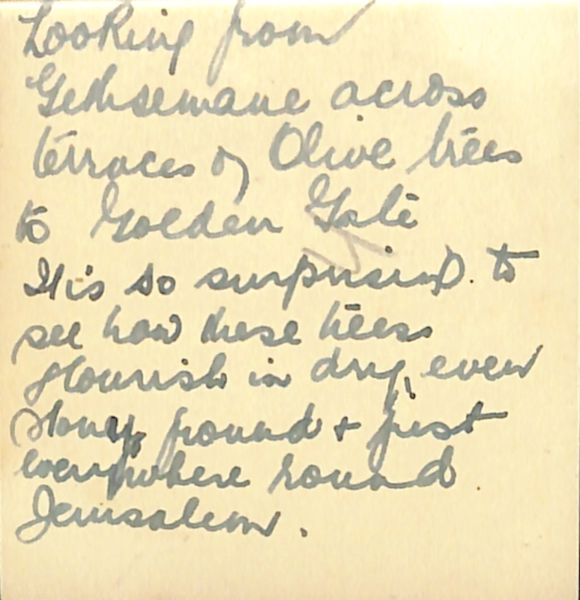 Looking from
Gethsemane across
terraces of Olive trees
to Golden Gate
It is so surprising to
see how these trees
flourish in dry, even
stony ground & just
everywhere round
Jerusalem.